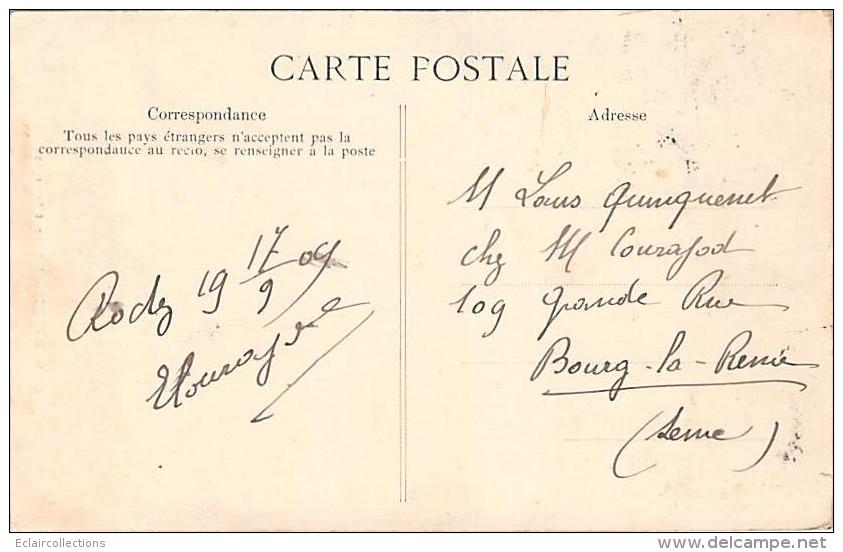 CARTE POSTALE
Correspondance
Tous les pays étrangers n'acceptent pas la
correspondance au recto, se renseigner à la poste
Rodez 19 17/9 09
Adresse
M Louis Quinquenet
chez M Courajod
109 Grande Rue
Bourg-la-Reine
(Seine)
Eclaircollections
delcampe.net